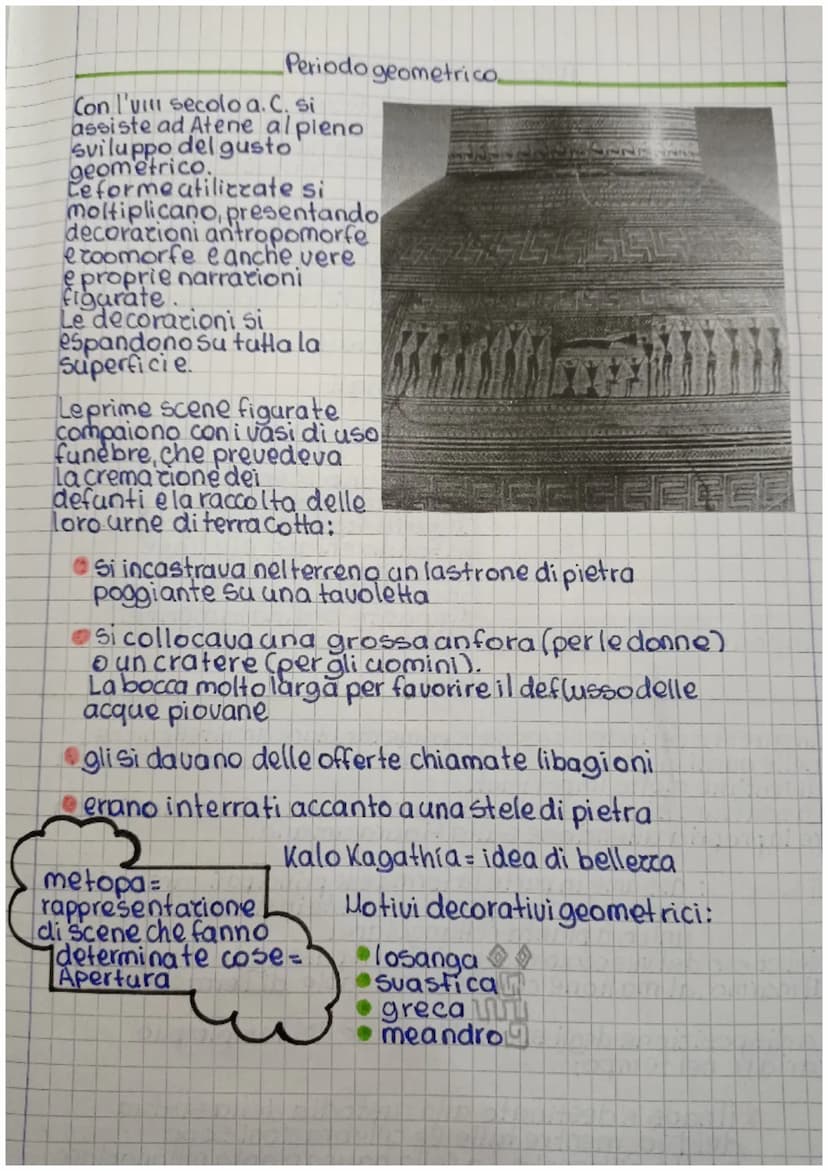 Periodo geometrico
Con l'VIII secolo a.C. si
assiste ad Atene al pieno
sviluppo del gusto
geometrico.
Le forme utilizzate si
moltiplicano, presentando
decorazioni antropomorfe
e zoomorfe e anche vere
e proprie narrazioni
figurate.
Le decorazioni si
espandono su tutta la
superficie.
Le prime scene figurate
compaiono con i vasi di uso
funebre, che prevedeva
la cremazione dei
defunti e la raccolta delle
loro urne di terracotta:
si incastrava nel terreno un lastrone di pietra
poggiante su una tavoletta
si collocava una grossa anfora (per le donne)
o un cratere (per gli uomini).
La bocca molto larga per favorire il deflusso delle
acque piovane
gli si davano delle offerte chiamate libagioni
erano interrati accanto a una stele di pietra
Kalo Kagathía = idea di bellezza
metopa =
rappresentazione
di scene che fanno
determinate cose =
Apertura
Motivi decorativi geometrici:
losanga
suastica
greca
meandro